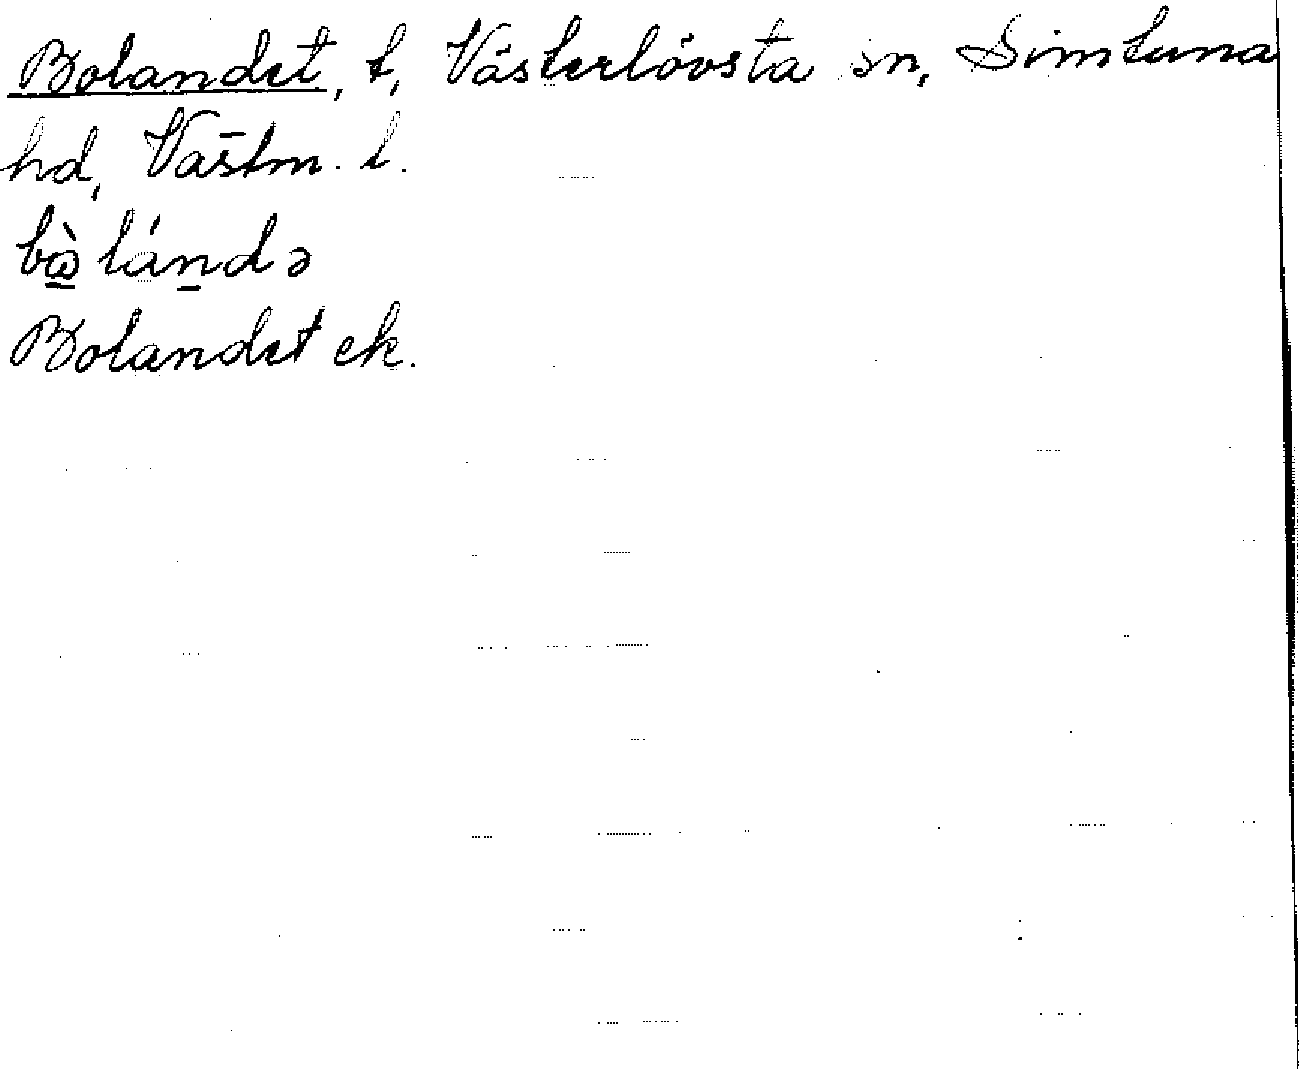 Bolandet, t, Västerlövsta sn, Simtuna
hd, Västm. l.
bὼ̠lán̠də
Bolandet ek.